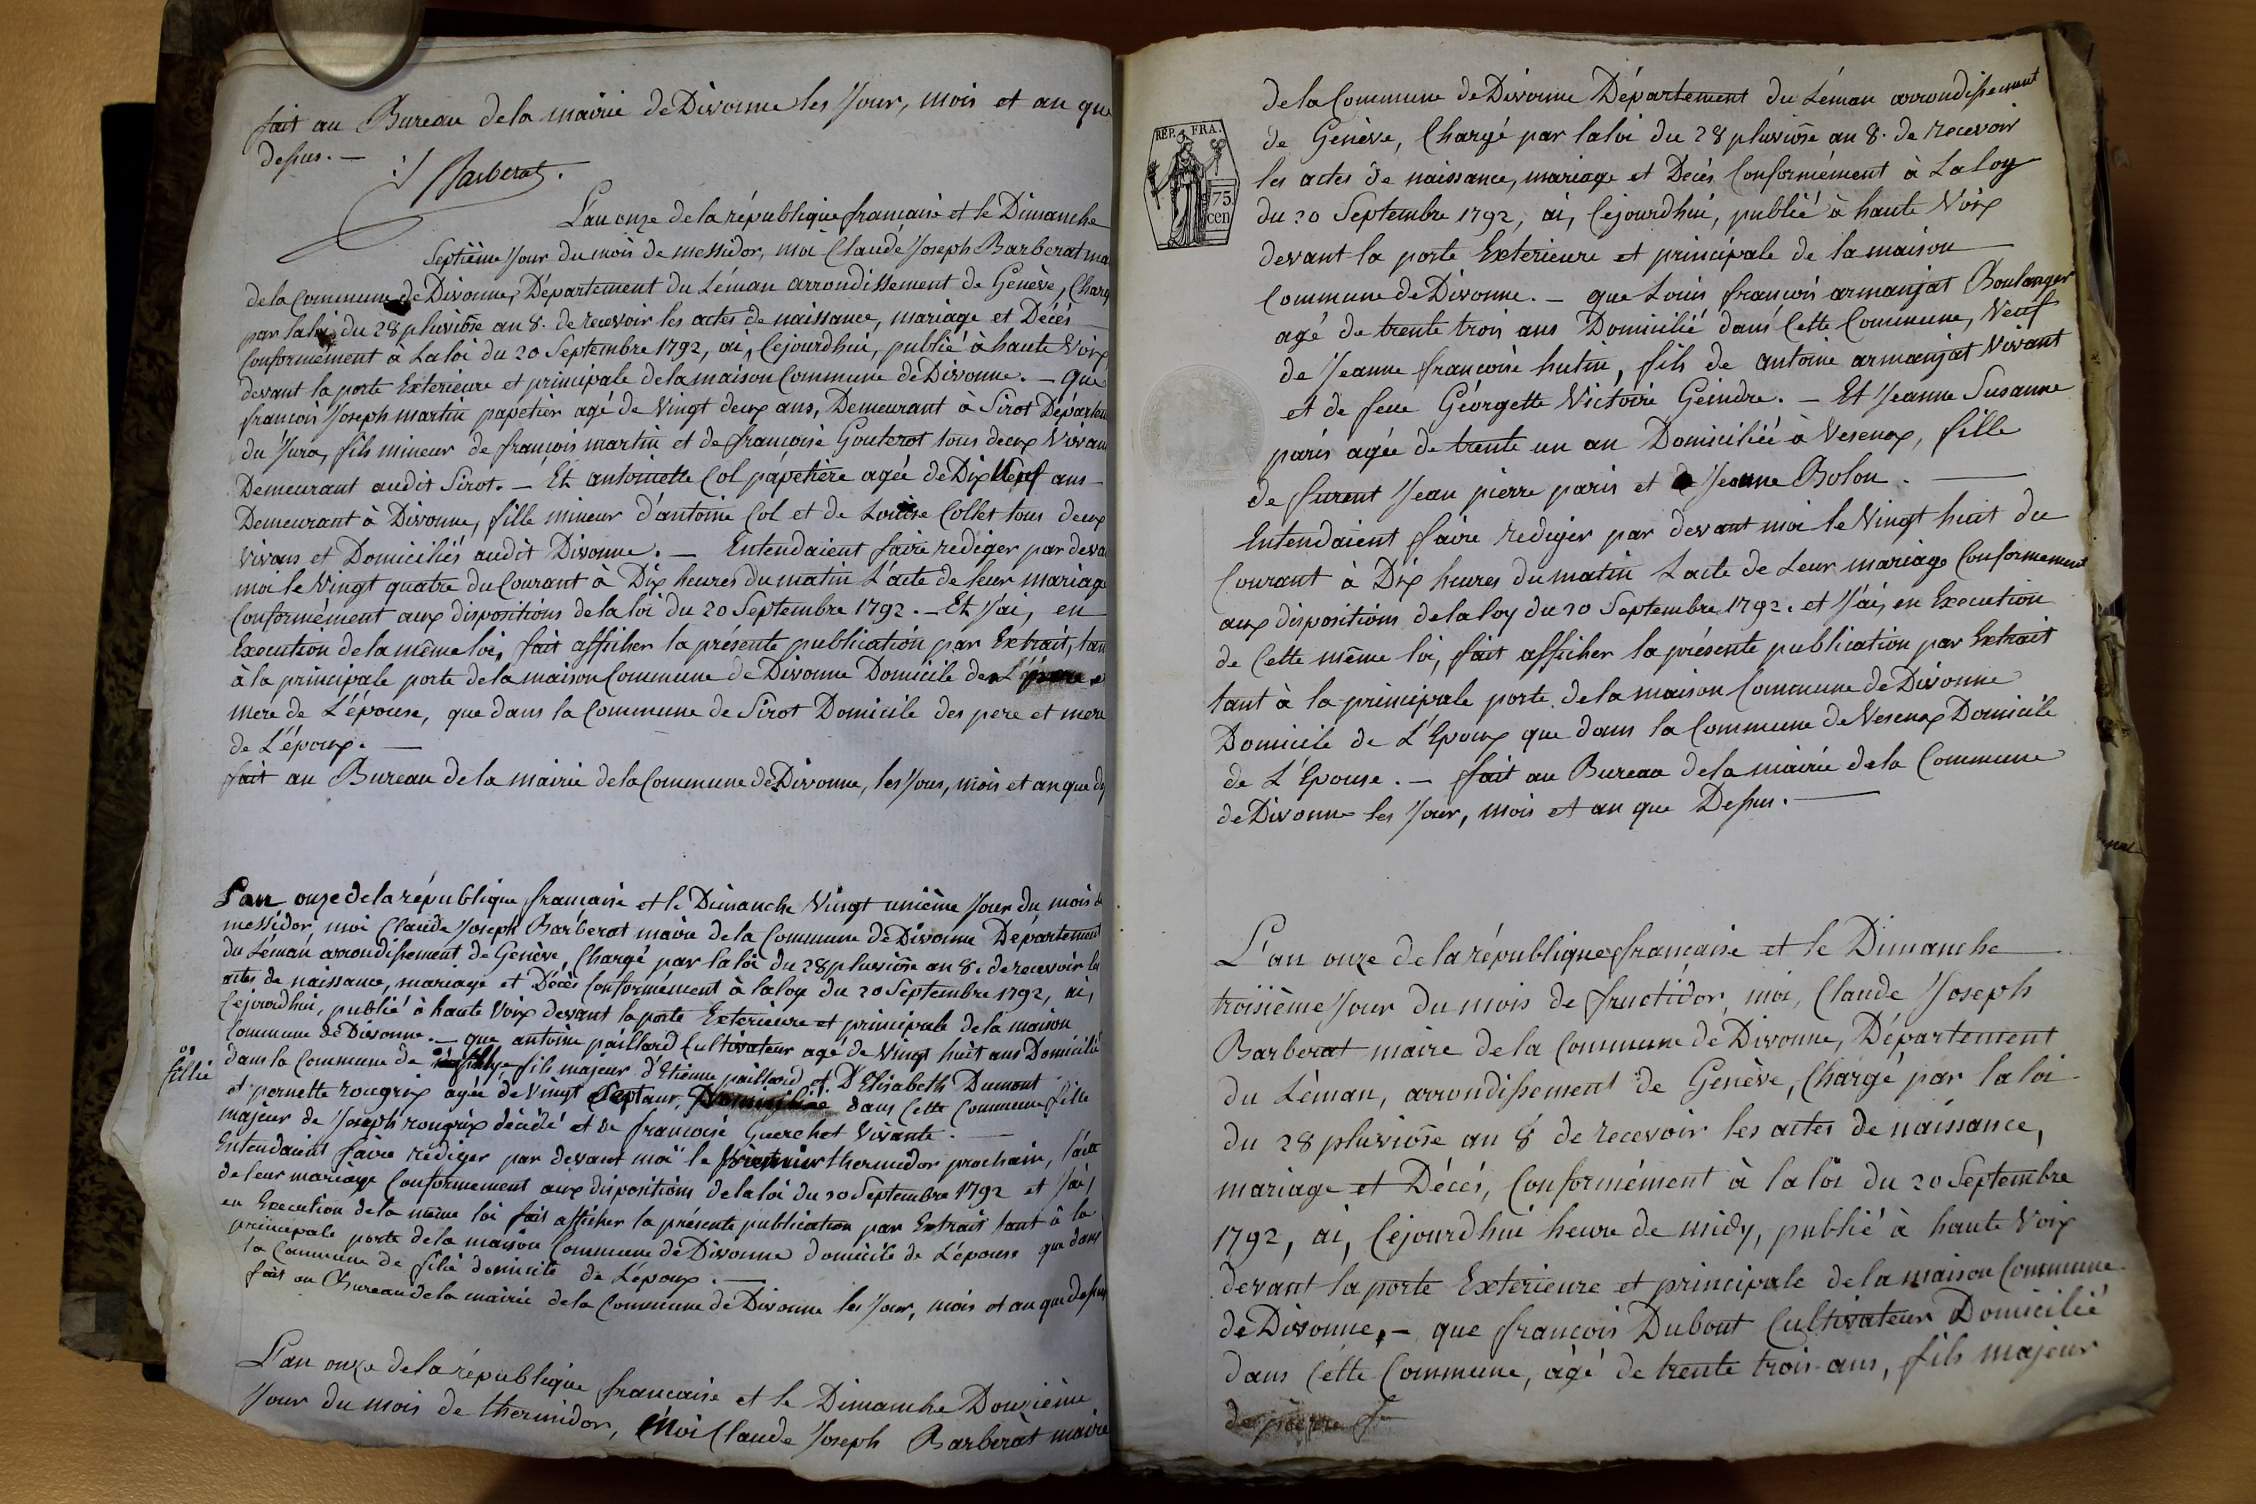 fait au Bureau de la mairie de Divonne les Jour, mois et an que
dessus. —
J Barberat.
L'an onze de la république francaise et le Dimanche
Septième Jour du mois de messidor, moi Claude Joseph Barberat ma
de la Commune de Divonne, Département du Léman arrondissement de Genève, Charg
par la loi du 28 pluviôse an 8. de recevoir les actes de naissance, mariage et Décés
Conformément à La loi du 20 Septembre 1792, ai, Cejourdhui, publié à haute Voix
devant la porte Exterieure et principale de la maison Commune de Divonne. — que
francois Joseph martin papetier agé de Vingt deux ans, Demeurant à Sirot Départem
du Jura, fils mineur de francois martin et de francoise Gouterot tous deux Vivan
Demeurant audit Sirot. — Et antoinette Col papetiere agée de Dix Neuf ans
Demeurant à Divonne, fille mineur d'antoine Col et de Louise Collet tous deux
Vivans et Domiciliés audit Divonne. — Entendaient faire rediger par deva
moi le Vingt quatre du Courant à Dix heures du matin L'acte de leur mariage
Conformément aux dispositions de la loi du 20 Septembre 1792. — Et J'ai, en
Execution de la même loi, fait afficher la présente publication par Extrait, tan
à la principale porte de la maison Commune de Divonne Domicile de
mere de L'épouse, que dans la Commune de Sirot Domicile des pere et mere
de L'époux. —
fait au Bureau de la mairie de la Commune de Divonne, les Jour, mois et an que d
L'an onze de la république francaise et le Dimanche Vingt unième Jour du mois de
messidor, moi Claude Joseph Barberat maire de la Commune de Divonne Département
du Léman arrondissement de Genève, Chargé par la loi du 28 pluviôse an 8. de recevoir les
actes de naissance, mariage et Décés Conformément à la loy du 20 Septembre 1792, ai,
Cejourdhui, publié à haute Voix devant la porte Exterieure et principale de la maison
Commune de Divonne. — que antoine paillard Cultivateur agé de Vingt huit ans Domicilié
fillié
dans la Commune de fils majeur d'Etienne paillard et D'Elisabeth Dumont
et pernette rougrix agée de Vingt Sept ans, Domiciliée dans Cette Commune fille
majeur de Joseph rougrix décédé et de francoise Guerchet Vivante. —
Entendaient faire rédiger par devant moi le thermidor prochain, l'acte
de leur mariage Conformement aux dispositions de la loi du 20 Septembre 1792 et J'ai,
en Execution de la même loi fait afficher la présente publication par Extrait tant à la
principale porte de la maison Commune de Divonne domicile de L'épouse que dans
la Commune de fillié domicile de L'époux. —
fait au Bureau de la mairie de la Commune de Divonne les Jour, mois et an que dessus
L'an onze de la république francaise et le Dimanche Douzième
Jour du mois de thermidor, Moi Claude Joseph Barberat maire
de la Commune de Divonne Département du Léman arrondissement
REP. FRA.
75
cen
de Genève, Chargé par la loi du 28 pluviôse an 8. de recevoir
les actes de naissance, mariage et Décés Conformément à La loy
du 20 Septembre 1792, ai, Cejourdhui, publié à haute Voix
devant la porte Exterieure et principale de la maison
Commune de Divonne. — que Louis francois armanjat Boulanger
agé de trente trois ans Domicilié dans Cette Commune, Veuf
de Jeanne francoise hutin, fils de antoine armanjat Vivant
et de feue Géorgette Victoire Geindre. — Et Jeanne Susanne
paris agée de trente un an Domiciliée à Vesenex, fille
de furent Jean pierre paris et Jeanne Bolon. —
Entendaient faire rediger par devant moi le Vingt huit du
Courant à Dix heures du matin L'acte de Leur mariage Conformement
aux dispositions de la loy du 20 Septembre 1792. et J'ai, en Execution
de Cette même loi, fait afficher la présente publication par Extrait
tant à la principale porte de la maison Commune de Divonne
Domicile de L'Epoux que dans la Commune de Vesenex Domicile
de L'Epouse. — fait au Bureau de la mairie de la Commune
de Divonne les Jour, mois et an que Dessus. —
L'an onze de la république francaise et le Dimanche
troisième Jour du mois de fructidor, moi, Claude Joseph
Barberat maire de la Commune de Divonne, Département
du Léman, arrondissement de Genève, Chargé par la loi
du 28 pluviôse an 8 de recevoir les actes de naissance,
mariage et Décés, Conformément à la loi du 20 Septembre
1792, ai, Cejourdhui heure de midy, publié à haute Voix
devant la porte Exterieure et principale de la maison Commune
de Divonne, — que francois Dubout Cultivateur Domicilié
dans Cétte Commune, agé de trente trois ans, fils majeur
de pierre